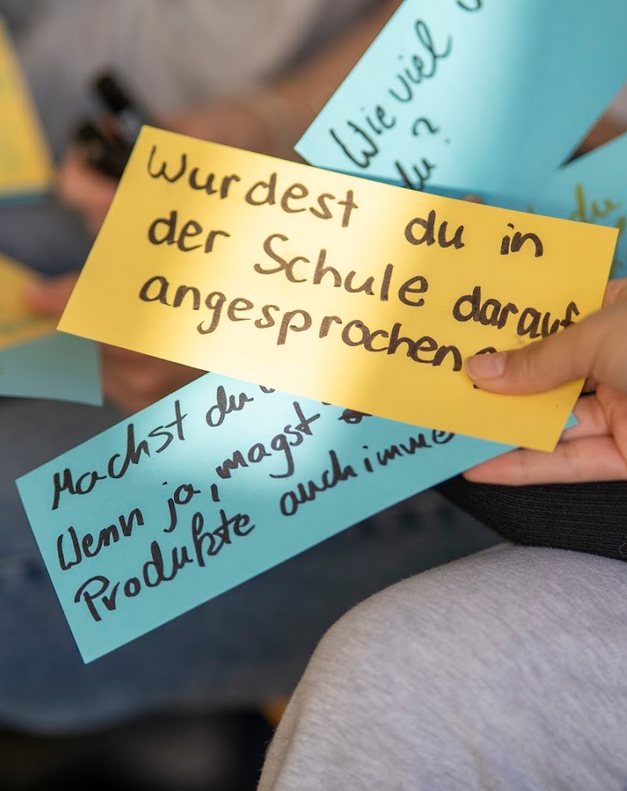 Wie viel
du?
du
Wurdest du in
der Schule darauf
angesprochen
Machst du
Wenn ja, magst
Produkte auch imme